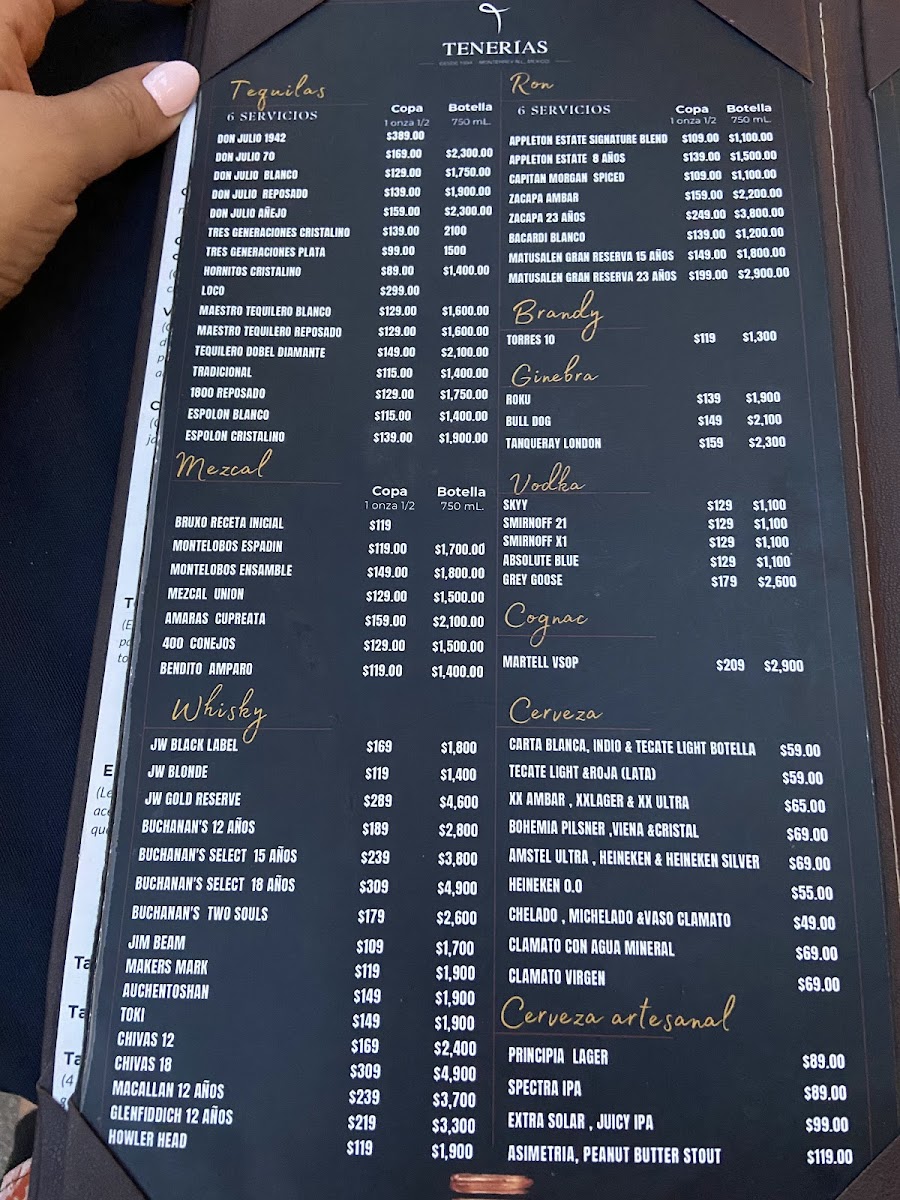 TENERÍAS
Tequilas
6 SERVICIOS
Copa Botella
1 onza 1/2 750 mL.
DON JULIO 1942 $389.00
DON JULIO 70 $169.00 $2,300.00
DON JULIO BLANCO $129.00 $1,750.00
DON JULIO REPOSADO $139.00 $1,900.00
DON JULIO AÑEJO $159.00 $2,300.00
TRES GENERACIONES CRISTALINO $139.00 2100
TRES GENERACIONES PLATA $99.00 1500
HORNITOS CRISTALINO $89.00 $1,400.00
LOCO $299.00
MAESTRO TEQUILERO BLANCO $129.00 $1,600.00
MAESTRO TEQUILERO REPOSADO $129.00 $1,600.00
TEQUILERO DOBEL DIAMANTE $149.00 $2,100.00
TRADICIONAL $115.00 $1,400.00
1800 REPOSADO $129.00 $1,750.00
ESPOLON BLANCO $115.00 $1,400.00
ESPOLON CRISTALINO $139.00 $1,900.00
Mezcal
Copa Botella
1 onza 1/2 750 mL.
BRUXO RECETA INICIAL $119
MONTELOBOS ESPADIN $119.00 $1,700.00
MONTELOBOS ENSAMBLE $149.00 $1,800.00
MEZCAL UNION $129.00 $1,500.00
AMARAS CUPREATA $159.00 $2,100.00
400 CONEJOS $129.00 $1,500.00
BENDITO AMPARO $119.00 $1,400.00
Whisky
JW BLACK LABEL $169 $1,800
JW BLONDE $119 $1,400
JW GOLD RESERVE $289 $4,600
BUCHANAN'S 12 AÑOS $189 $2,800
BUCHANAN'S SELECT 15 AÑOS $239 $3,800
BUCHANAN'S SELECT 18 AÑOS $309 $4,900
BUCHANAN'S TWO SOULS $179 $2,600
JIM BEAM $109 $1,700
MAKERS MARK $119 $1,900
AUCHENTOSHAN $149 $1,900
TOKI $149 $1,900
CHIVAS 12 $169 $2,400
CHIVAS 18 $309 $4,900
MACALLAN 12 AÑOS $239 $3,700
GLENFIDDICH 12 AÑOS $219 $3,300
HOWLER HEAD $119 $1,900
Ron
6 SERVICIOS
Copa Botella
1 onza 1/2 750 mL.
APPLETON ESTATE SIGNATURE BLEND $109.00 $1,100.00
APPLETON ESTATE 8 AÑOS $139.00 $1,500.00
CAPITAN MORGAN SPICED $109.00 $1,100.00
ZACAPA AMBAR $159.00 $2,200.00
ZACAPA 23 AÑOS $249.00 $3,800.00
BACARDI BLANCO $139.00 $1,200.00
MATUSALEN GRAN RESERVA 15 AÑOS $149.00 $1,800.00
MATUSALEN GRAN RESERVA 23 AÑOS $199.00 $2,900.00
Brandy
TORRES 10 $119 $1,300
Ginebra
ROKU $139 $1,900
BULL DOG $149 $2,100
TANQUERAY LONDON $159 $2,300
Vodka
SKYY $129 $1,100
SMIRNOFF 21 $129 $1,100
SMIRNOFF X1 $129 $1,100
ABSOLUTE BLUE $129 $1,100
GREY GOOSE $179 $2,600
Cognac
MARTELL VSOP $209 $2,900
Cerveza
CARTA BLANCA, INDIO & TECATE LIGHT BOTELLA $59.00
TECATE LIGHT &ROJA (LATA) $59.00
XX AMBAR , XXLAGER & XX ULTRA $65.00
BOHEMIA PILSNER ,VIENA &CRISTAL $69.00
AMSTEL ULTRA , HEINEKEN & HEINEKEN SILVER $69.00
HEINEKEN 0.0 $55.00
CHELADO , MICHELADO &VASO CLAMATO $49.00
CLAMATO CON AGUA MINERAL $69.00
CLAMATO VIRGEN $69.00
Cerveza artesanal
PRINCIPIA LAGER $89.00
SPECTRA IPA $89.00
EXTRA SOLAR , JUICY IPA $99.00
ASIMETRIA, PEANUT BUTTER STOUT $119.00